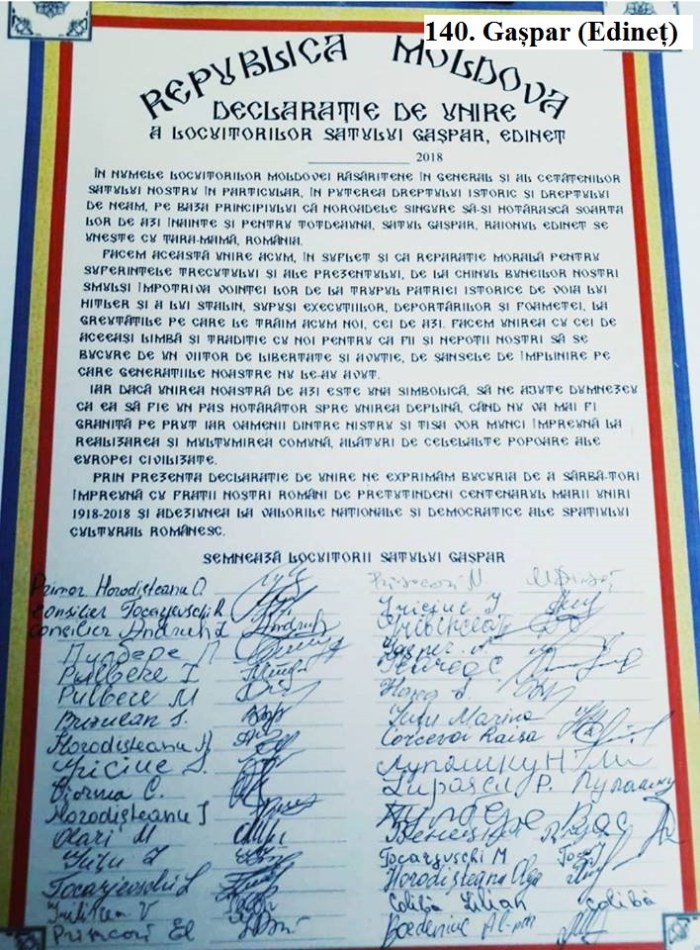 140. Gașpar (Edineț)
REPUBLICA MOLDOVA
DECLARAȚIE DE UNIRE
A LOCUITORILOR SATULUI GAȘPAR, EDINEȚ
2018
ÎN NUMELE LOCUITORILOR MOLDOVEI RĂSĂRITENE ÎN GENERAL ȘI AL CETĂȚENILOR
SATULUI NOSTRU ÎN PARTICULAR, ÎN PUTEREA DREPTULUI ISTORIC ȘI DREPTULUI
DE NEAM, PE BAZA PRINCIPIULUI CĂ NOROADELE SINGURE SĂ-ȘI HOTĂRASCĂ SOARTA
LOR DE AZI ÎNAINTE ȘI PENTRU TOTDEAUNA, SATUL GAȘPAR, RAIONUL EDINEȚ SE
UNEȘTE CU ȚARA-MAMĂ, ROMÂNIA.
FACEM ACEASTĂ UNIRE ACUM, ÎN SUFLET ȘI CA REPARAȚIE MORALĂ PENTRU
SUFERINȚELE TRECUTULUI ȘI ALE PREZENTULUI, DE LA CHINUL BUNEILOR NOȘTRI
SMULȘI ÎMPOTRIVA VOINȚEI LOR DE LA TRUPUL PATRIEI ISTORICE DE VOIA LUI
HITLER ȘI A LUI STALIN, SUPUȘI EXECUȚIILOR, DEPORTĂRILOR ȘI FOAMETEI, LA
GREUTĂȚILE PE CARE LE TRĂIM ACUM NOI, CEI DE AZI. FACEM UNIREA CU CEI DE
ACEEAȘI LIMBĂ ȘI TRADIȚIE CU NOI PENTRU CA FII ȘI NEPOȚII NOȘTRI SĂ SE
BUCURE DE UN VIITOR DE LIBERTATE ȘI AVUȚIE, DE ȘANSELE DE ÎMPLINIRE PE
CARE GENERAȚIILE NOASTRE NU LE-AU AVUT.
IAR DACĂ UNIREA NOASTRĂ DE AZI ESTE UNA SIMBOLICĂ, SĂ NE AJUTE DUMNEZEU
CA EA SĂ FIE UN PAS HOTĂRÂTOR SPRE UNIREA DEPLINĂ, CÂND NU VA MAI FI
GRANIȚĂ PE PRUT IAR OAMENII DINTRE NISTRU ȘI TISA VOR MUNCI ÎMPREUNĂ LA
REALIZAREA ȘI MULȚUMIREA COMUNĂ, ALĂTURI DE CELELALTE POPOARE ALE
EUROPEI CIVILIZATE.
PRIN PREZENTA DECLARAȚIE DE UNIRE NE EXPRIMĂM BUCURIA DE A SĂRBĂ-TORI
ÎMPREUNĂ CU FRAȚII NOȘTRI ROMÂNI DE PRETUTINDENI CENTENARUL MARII UNIRI
1918-2018 ȘI ADEZIUNEA LA VALORILE NAȚIONALE ȘI DEMOCRATICE ALE SPAȚIULUI
CULTURAL ROMÂNESC.
SEMNEAZĂ LOCUITORII SATULUI GAȘPAR
Primar Horodișteanu O.
consilier
consilier Andruh
Пулбере П
Pulbere I
Pulbere M
Horodișteanu
C.
Horodișteanu I
Olari M
V
Marina
Raisa
Лупашку Н
Lupașcu P. Лупашку
Пулбере Вас
M
Horodișteanu Olga
Colibă Lilian Colibă